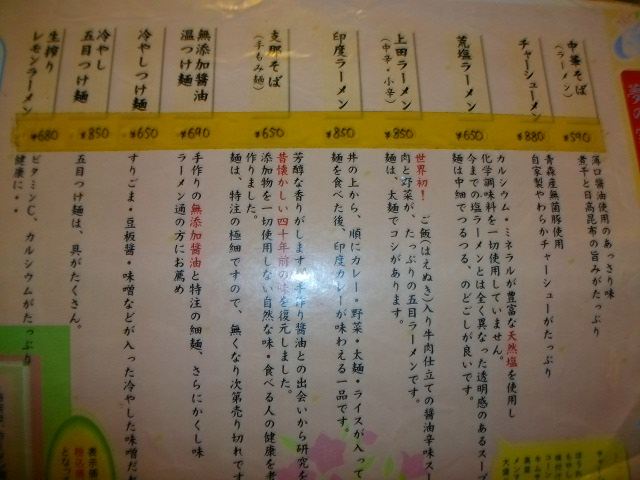 中華そば
(ラーメン)
¥590
薄口醤油使用のあっさり味
煮干と日高昆布の旨みがたっぷり
チャーシューメン
¥880
青森産無菌豚使用
自家製やわらかチャーシューがたっぷり
荒塩ラーメン
¥650
カルシウム・ミネラルが豊富な天然塩を使用し
化学調味料を一切使用していません。
今までの塩ラーメンとは全く異なった透明感のあるスープ
麺は中細でつるつる、のどごしが良いです。
上田ラーメン
(中辛・小辛)
¥850
世界初!ご飯(はえぬき)入り牛肉仕立ての醤油辛味スー
肉と野菜が、たっぷりの五目ラーメンです。
麺は、太麺でコシがあります。
印度ラーメン
¥850
丼の上から、順にカレー・野菜・太麺・ライスが入って
麺を食べた後、印度カレーが味わえる一品です。
支那そば
(手もみ麺)
¥650
芳醇な香りがします。手作り醤油との出会いから研究を
昔懐かしい、四十年前の味を復元しました。
添加物を一切使用しない自然な味・食べる人の健康を考
作りました。
麺は、特注の極細ですので、無くなり次第売り切れです
無添加醤油
温つけ麺
¥690
手作りの無添加醤油と特注の細麺、さらにかくし味
ラーメン通の方にお薦め
冷やしつけ麺
¥650
すりごま・豆板醤・味噌などが入った冷やした味噌だれ
冷やし
五目つけ麺
¥850
五目つけ麺は、具がたくさん。
生搾り
レモンラーメン
¥680
ビタミンC、カルシウムがたっぷり
健康に・・
表示価
となっ